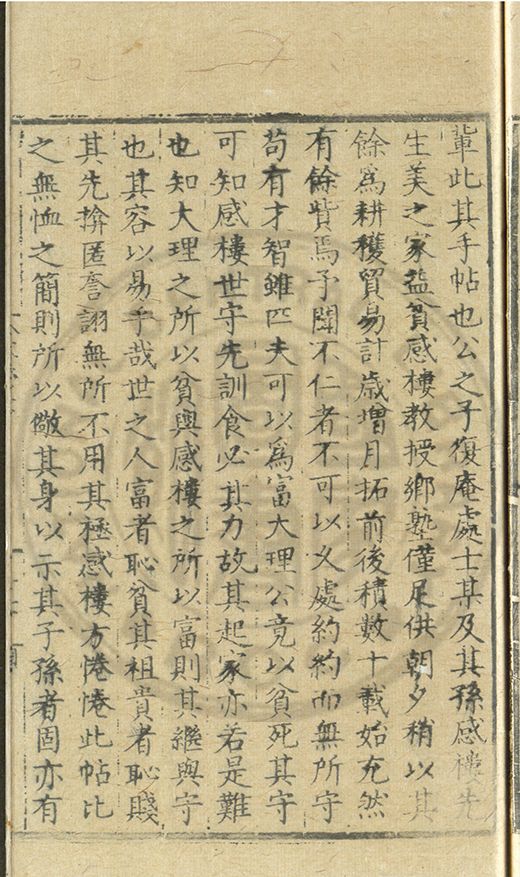 輩此其手帖也公之子復庵處士某及其孫感樓先
生美之家益貧感樓教授鄉塾僅足供朝夕稍以其
餘爲耕穫貿易計歲增月拓前後積數十載始充然
有餘貲焉予聞不仁者不可以乆處約約而無所守
苟有才智雖匹夫可以爲富大理公竟以貧死其守
可知感樓世守先訓食必其力故其起家亦若是難
也知大理之所以貧與感樓之所以富則其繼與守
也其容以易乎哉世之人富者恥貧其祖貴者恥賤
其先揜匿誇詡無所不用其極感樓方惓惓此帖比
之無恤之簡則所以儆其身以示其子孫者固亦有